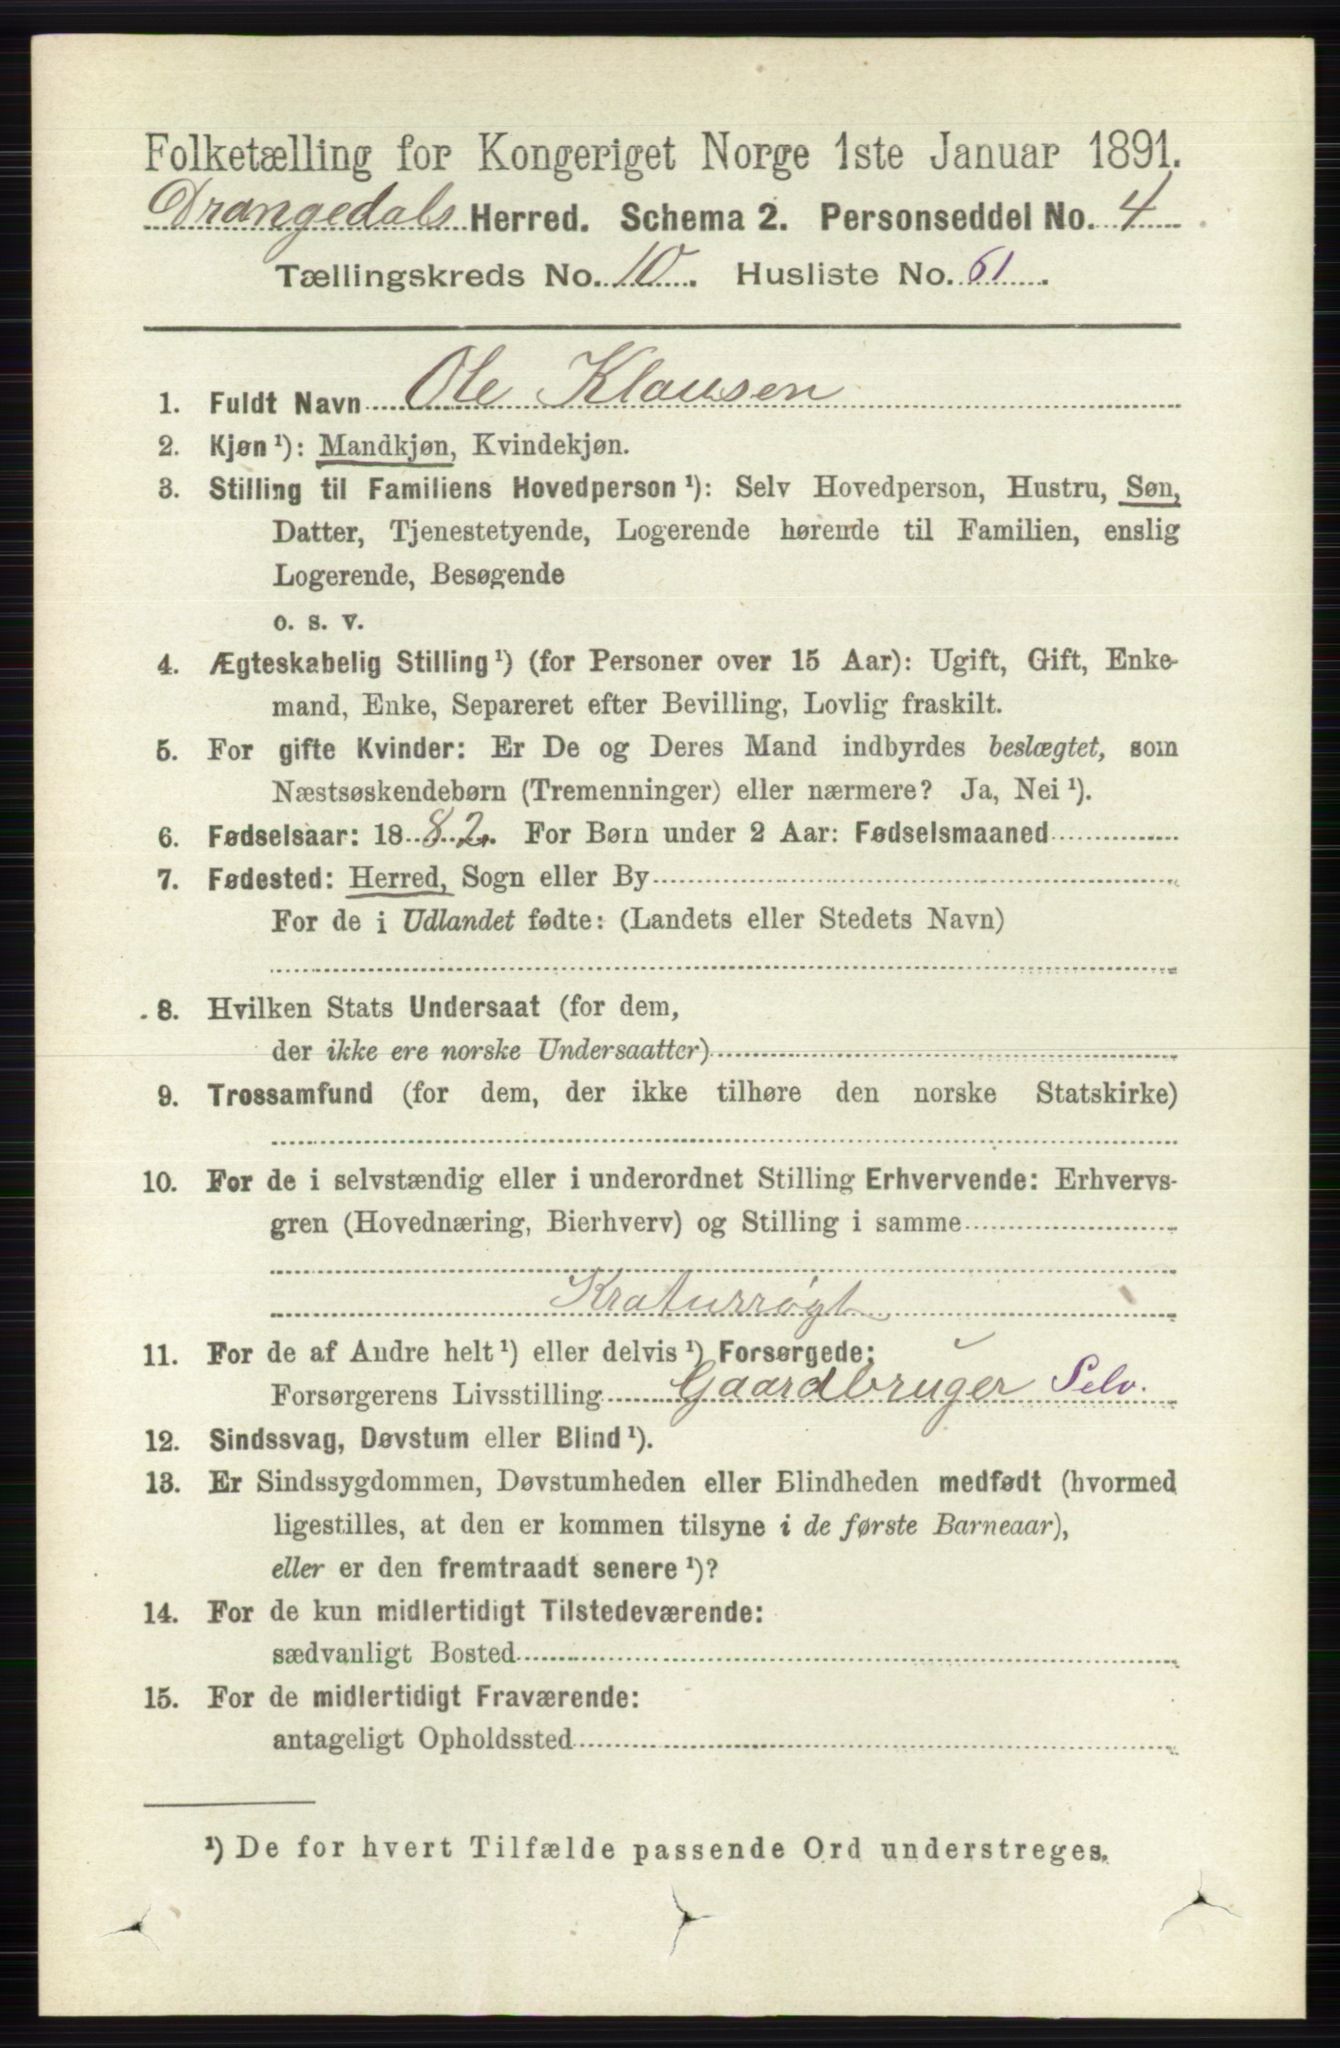 Folketælling for Kongeriget Norge 1ste Januar 1891.
Drangedals Herred. Schema 2. Personseddel No. 4
Tællingskreds No. 10. Husliste No. 61.
1. Fuldt Navn Ole Klausen
2. Kjøn ¹): Mandkjøn, Kvindekjøn.
3. Stilling til Familiens Hovedperson ¹): Selv Hovedperson, Hustru, Søn,
Datter, Tjenestetyende, Logerende hørende til Familien, enslig
Logerende, Besøgende
o. s. v.
4. Ægteskabelig Stilling ¹) (for Personer over 15 Aar): Ugift, Gift, Enke-
mand, Enke, Separeret efter Bevilling, Lovlig fraskilt.
5. For gifte Kvinder: Er De og Deres Mand indbyrdes beslægtet, som
Næstsøskendebørn (Tremenninger) eller nærmere? Ja, Nei ¹).
6. Fødselsaar: 1882. For Børn under 2 Aar: Fødselsmaaned
7. Fødested: Herred, Sogn eller By
For de i Udlandet fødte: (Landets eller Stedets Navn)
8. Hvilken Stats Undersaat (for dem,
der ikke ere norske Undersaatter)
9. Trossamfund (for dem, der ikke tilhøre den norske Statskirke)
10. For de i selvstændig eller i underordnet Stilling Erhvervende: Erhvervs-
gren (Hovednæring, Bierhverv) og Stilling i samme
Kraturrøgt
11. For de af Andre helt ¹) eller delvis ¹) Forsørgede:
Forsørgerens Livsstilling Gaardbruger Selv.
12. Sindssvag, Døvstum eller Blind ¹).
13. Er Sindssygdommen, Døvstumheden eller Blindheden medfødt (hvormed
ligestilles, at den er kommen tilsyne i de første Barneaar),
eller er den fremtraadt senere ¹)?
14. For de kun midlertidigt Tilstedeværende:
sædvanligt Bosted
15. For de midlertidigt Fraværende:
antageligt Opholdssted
¹) De for hvert Tilfælde passende Ord understreges.